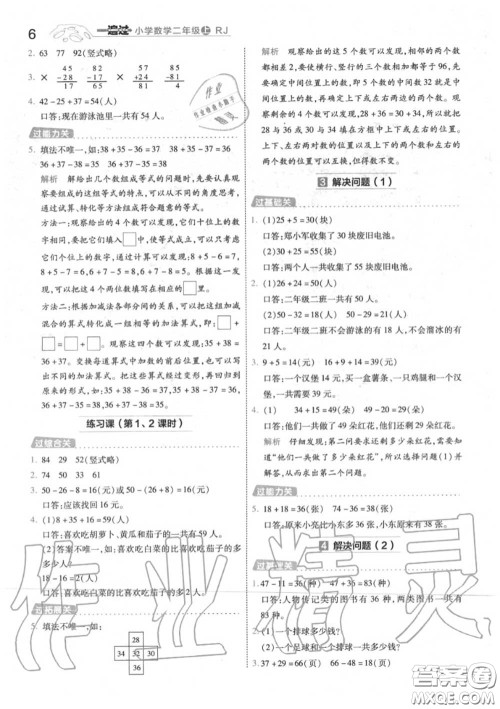 6 一遍过 小学数学二年级上 RJ
2. 63 77 92(竖式略)
3. × 45 × 38 × 58
-28 -17 -41
17 21 17
4. 42-25+37=54(人)
口答:现在游泳池里一共有54人。
过能力关
5. 填法不唯一,如:36+37=35+38 38+35-37=36
36+38-35=37 36+37-35=38
解析 解给出几个数组成等式的问题时,先要认真观察要组成的这组等式的特点,可以从不同的角度思考,通过试算、转化等方法组成符合题意的等式。
方法一:观察给出的4个数可以发现,它们十位上的数字都是3,个位上的数字通过计算发现:8+5-6=7,
8+5-7=6,7+6-5=8,6+7-8=5,在它们的个位数前面添上3,把这4个两位数填写在相应的□里。
方法二:根据加减法各部分间的关系,可以把含有加减混合的算式转化成一组相等的加法算式,即:
□+□=□+□。观察这四个数可以发现:35+38=
36+37。变换每道算式中加数的前后位置,也可以写出不同的加法算式。把这些算式经过变形,再回归到原来的形式,如:35+38-36=37,35+38-37=36,
36+37-35=38,36+37-38=35。
练习课(第1、2课时)
过综合关
1. 84 29 52(竖式略)
2. 74 50 33 61
3. 50-26-8=16(元)或50-(26+8)=16(元)
4. (1)8+35+16=59(人)
口答:喜欢吃胡萝卜、黄瓜和茄子的一共有59人。
(2)答案不唯一,如:喜欢吃白菜的比喜欢吃茄子的多多少人?
18-16=2(人)
口答:喜欢吃白菜的比喜欢吃茄子的多2人。
过拓展关
5. 填法不唯一,如:
28
34 32 30
36
解析 观察给出的这5个数可以发现,它们都是双数,都不相同,整行、整列的三个数相加都等于96,先要确定中间位置上的数,从小到大排列这五个数可以发现,这5个数的中间数32就是中间位置上的数,再确定上下或左右两边的数。观察剩余的4个数可以发现28+36=30+34,所以就把28与36或30与34填在方框中上下或左右的位置。上下、左右两边的数可以交换位置,因为加数交换位置后再相加,但得数不变。
3 解决问题(1)
过基础关
1. (1)25+5=30(块)
口答:郑小军收集了30块废旧电池。
(2)30+25=55(块)
口答:两个人一共收集了55块废旧电池。
2. (1)26+24=50(人)
口答:二年级二班一共有50人。
(2)50-32=18(人) 50-29=21(人)
口答:二年级二班不会游泳的有18人,不会溜冰的有21人。
3. 9+5=14(元) 16+9+14=39(元)
口答:一个汉堡14元,买一盒薯条、一只鸡腿和一个汉堡,一共需要39元。
4. (1) 34+15=49(朵) 49-20=29(朵)
口答:他们一共做了49朵红花,还剩29朵红花。
解析 仔细发现:第二问要求还剩多少朵红花,需要知道“他们一共做了多少朵红花”,所以第一个问题求出来才能解决第二个问题。
过能力关
5. 18+18=36(张) 36+2=38(张)
口答:原来小亮比小东多38张。
4 解决问题(2)
过基础关
1. 47-11=36(种) 47+36=83(种)
口答:人物传记类的图书有36种,这两类图书一共有83种。
2. (1)一个排球多少钱?
(2)一个排球和一个足球一共多少钱?
3. 37+29=66(页) 66-48=18(页)
作业
作业精灵
答案圈
MXQE.COM